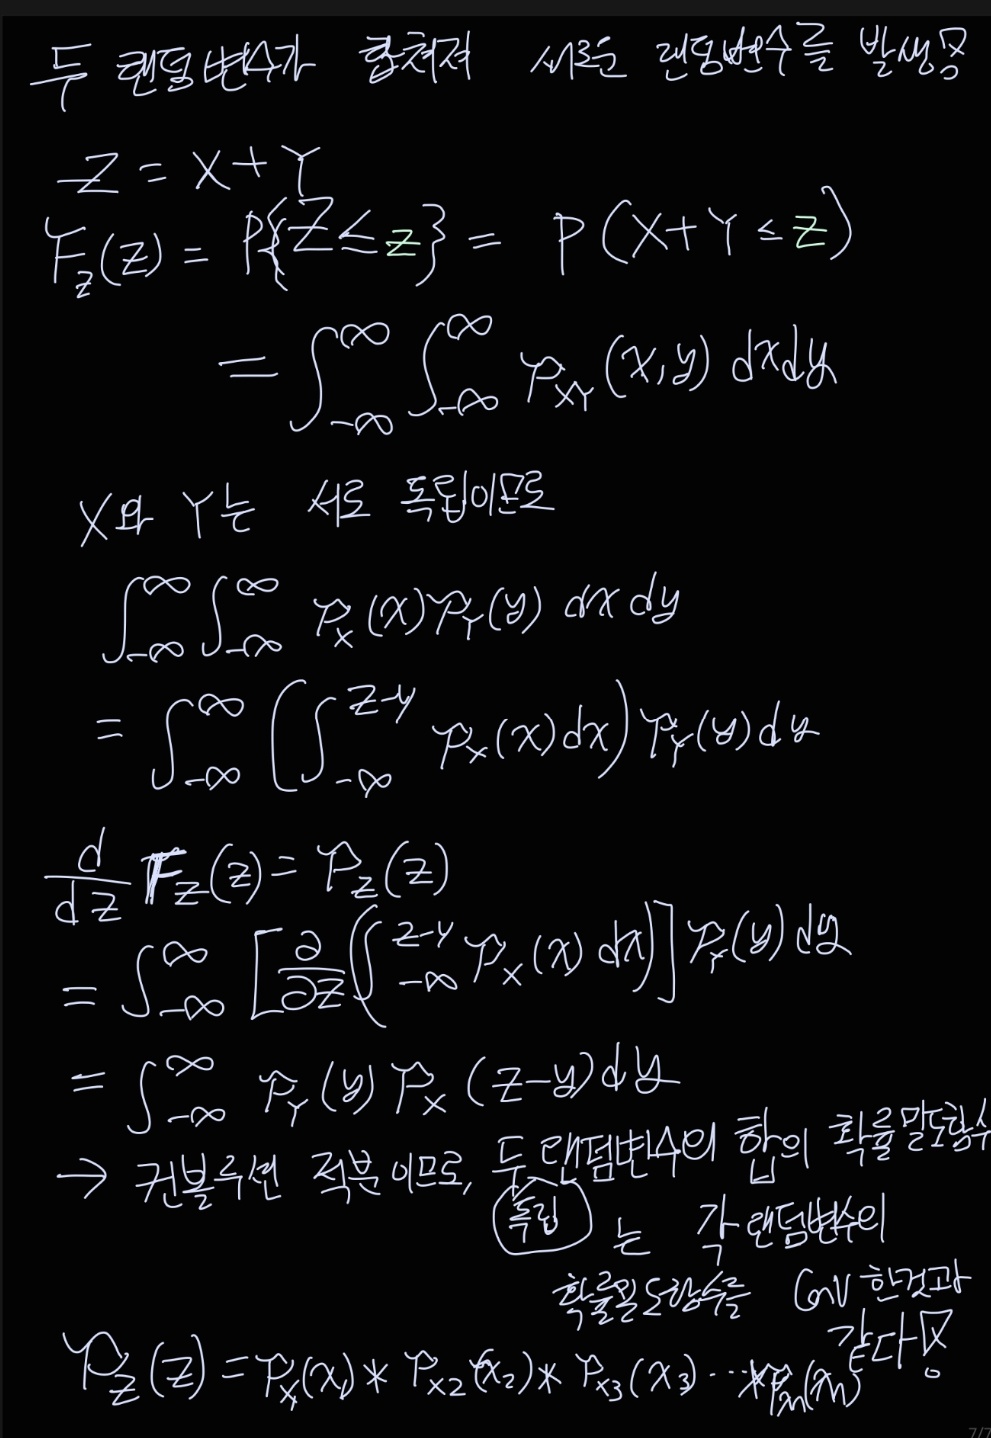 두 랜덤변수가 합쳐져 새로운 랜덤변수를 발생
Z = X + Y
F_Z(z) = P{Z ≤ z} = P(X+Y ≤ z)
= ∫_{-∞}^{∞} ∫_{-∞}^{∞} p_{XY}(x,y) dxdy
X와 Y는 서로 독립이므로
∫_{-∞}^{∞} ∫_{-∞}^{∞} p_X(x) p_Y(y) dx dy
= ∫_{-∞}^{∞} (∫_{-∞}^{z-y} p_X(x) dx) p_Y(y) dy
d/dz F_Z(z) = p_Z(z)
= ∫_{-∞}^{∞} [∂/∂z (∫_{-∞}^{z-y} p_X(x) dx)] p_Y(y) dy
= ∫_{-∞}^{∞} p_Y(y) p_X(z-y) dy
→ 컨볼루션 적분이므로, 두 랜덤변수의 합의 확률밀도함수
독립
는 각 랜덤변수의
확률밀도함수를 Conv 한것과
같다
p_Z(z) = p_{X}(x_1) * p_{X2}(x_2) * p_{X3}(x_3) ... * p_{Xn}(x_n)
7/7